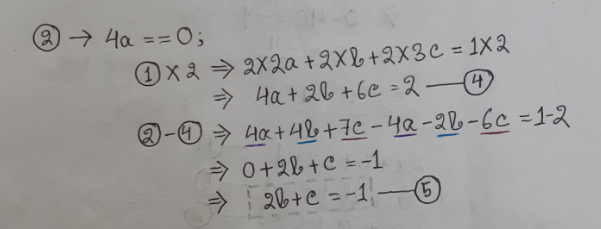 ② → 4a == 0;
① × 2 ⇒ 2×2a + 2×b + 2×3c = 1×2
⇒ 4a + 2b + 6c = 2 — ④
② - ④ ⇒ 4a + 4b + 7c - 4a - 2b - 6c = 1-2
⇒ 0 + 2b + c = -1
⇒ 2b + c = -1 — ⑤